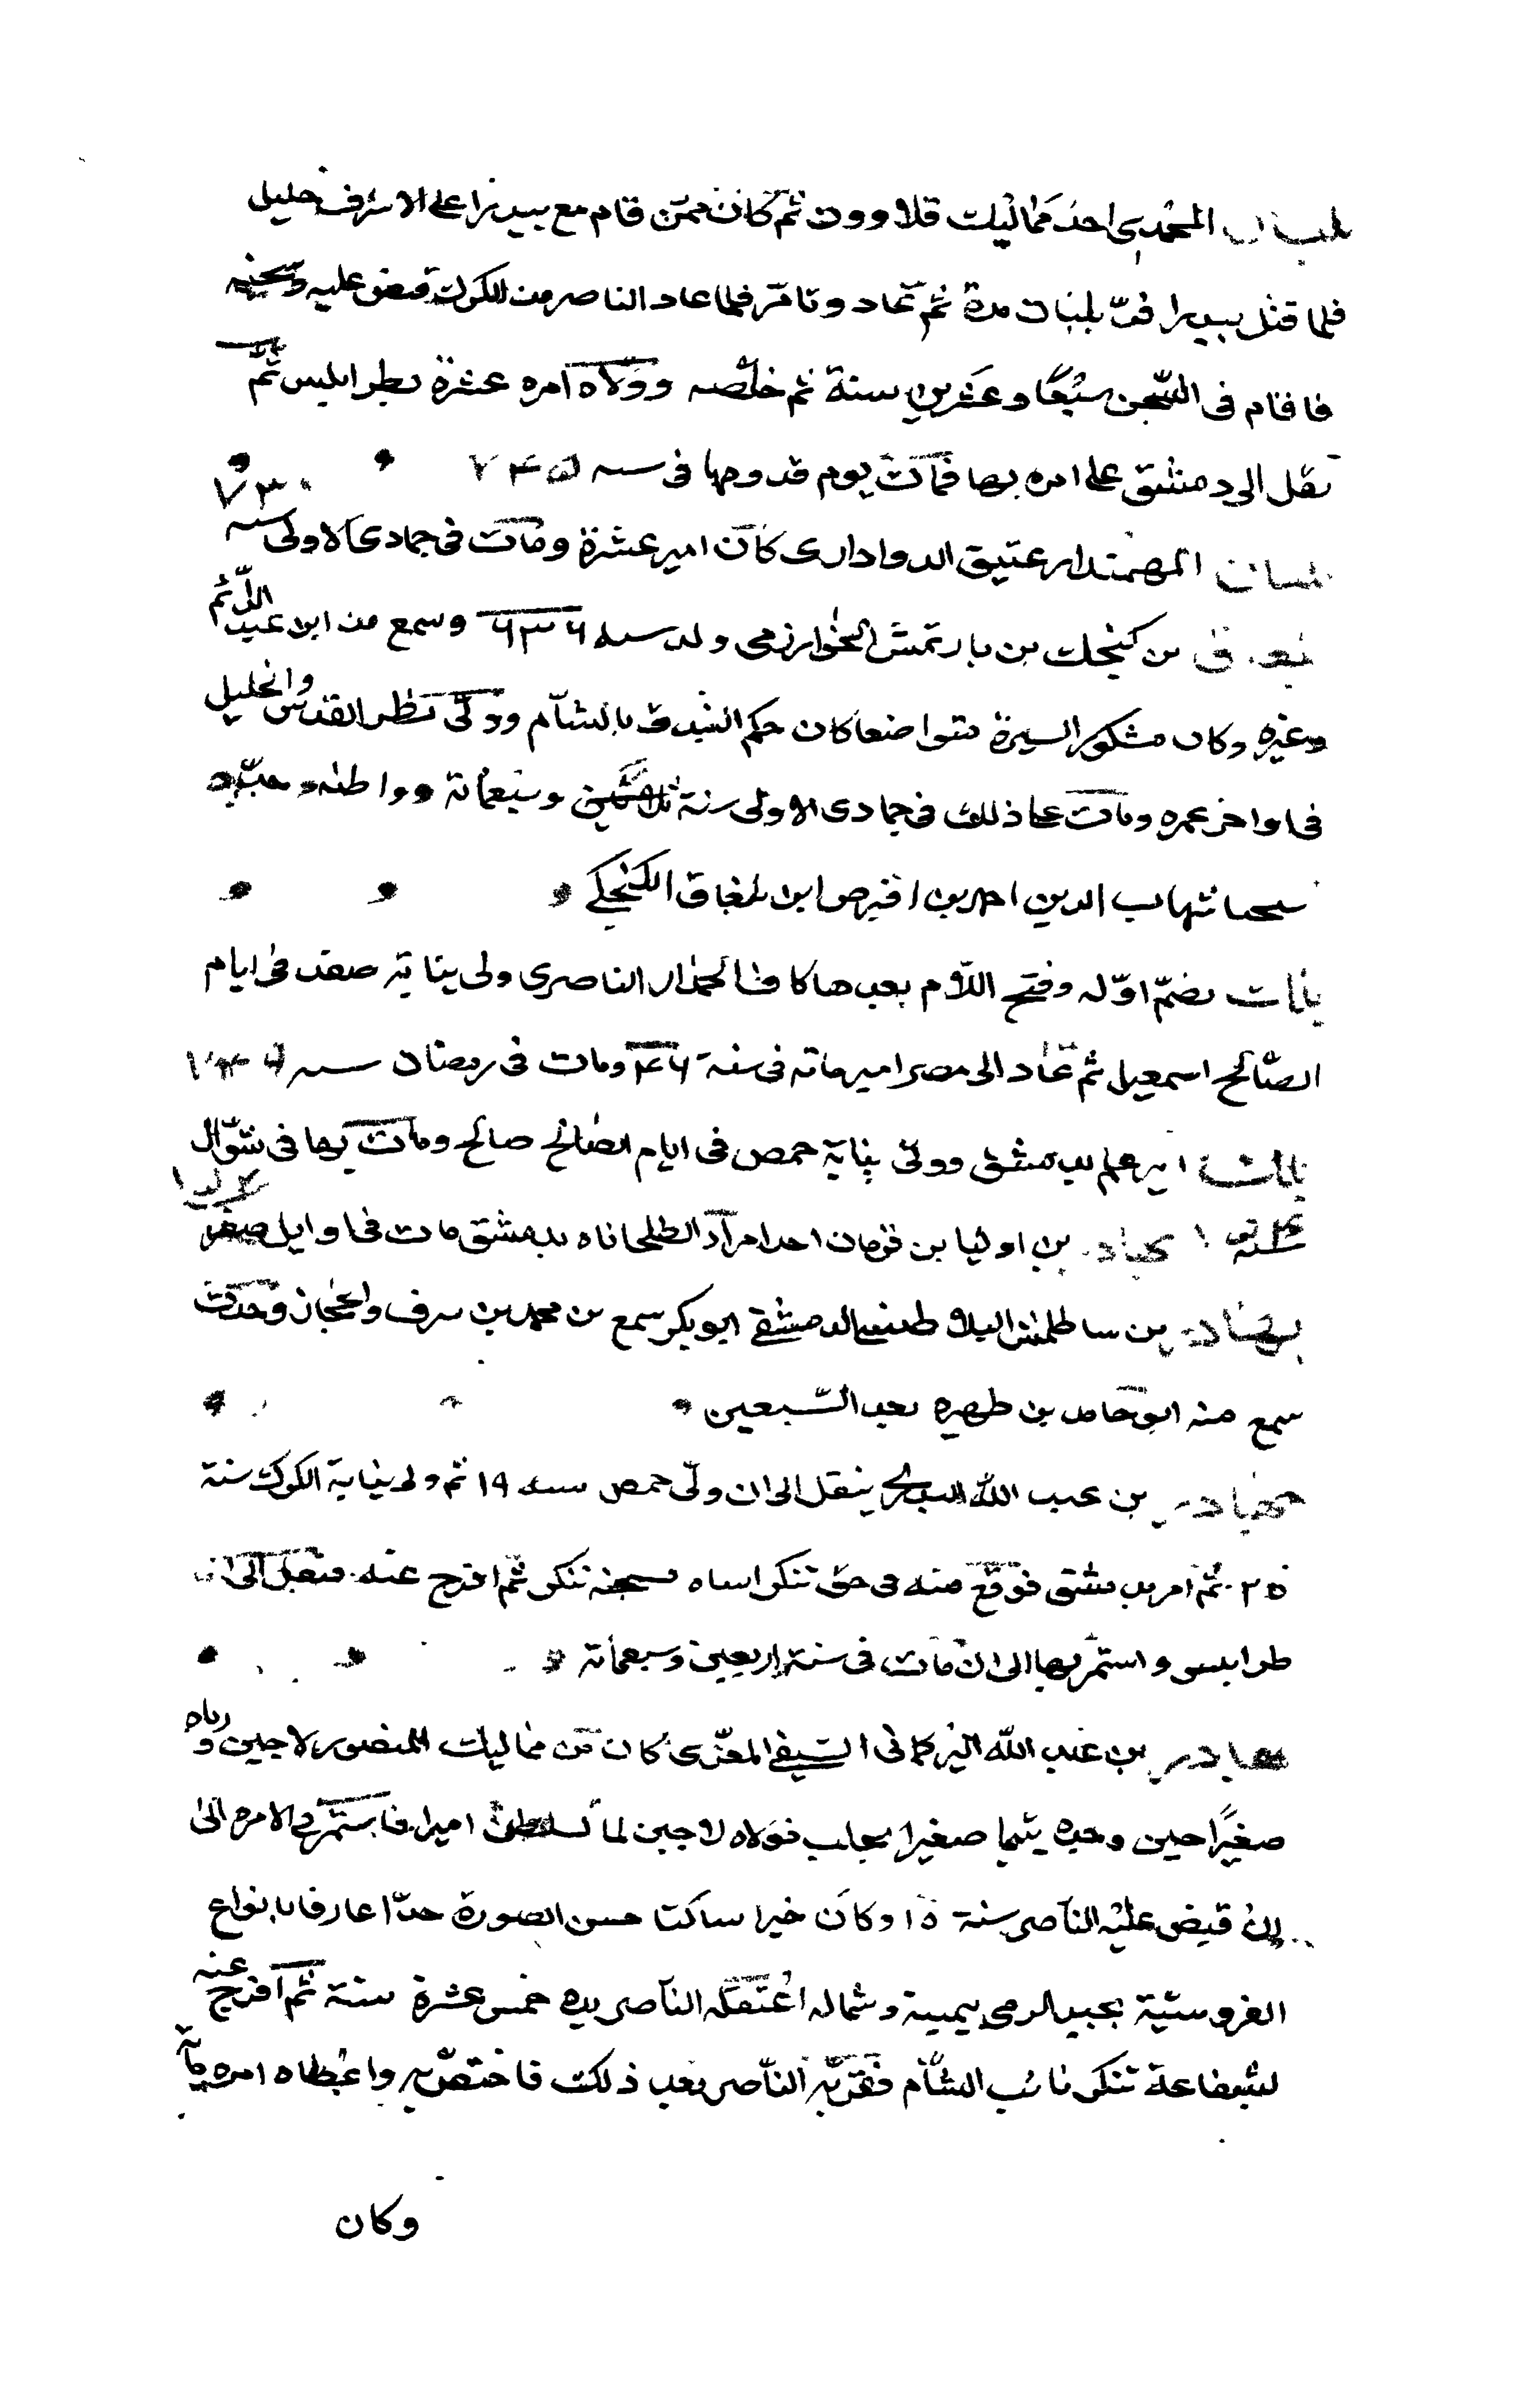 بلبان المحمدي احد مماليك قلاوون ثم كان ممن قام مع بيدرا على الاشرف خليل
فلما قتل بيدرا فر بلبان مدة ثم عاد وتامر فلما عاد الناصر من الكرك قبض عليه وسجنه
فاقام فى السجن سبعا وعشرين سنة ثم خلصه وولاه امره عشرة بطرابلس ثم
نقل الى دمشق على امره بها فمات يوم قدومها فى سنه ٧۴۵
بلبان المهمندار عتيق الدوادارى كان امير عشرة ومات فى جمادى الاولى سنه ٧٣٠
بلغاق بن كنجك بن بارتمش الخوارزمى ولد سنه ٦٣٦ وسمع من ابن عبد الدائم
وغيره وكان مشكور السيرة متواضعا كان حكم البندق بالشام وولى نظر القدس والخليل
فى اواخر عمره ومات على ذلك فى جمادى الاولى سنة وسبعمائة
شهاب الدين احمد بن ابن بلغاق الكنجكي
بضم اوله وفتح اللام بعدها كاف الجمدار الناصرى ولى نيابة صفد فى ايام
الصالح اسمعيل ثم عاد الى مصر امير مائة فى سنة ۴٦ ومات فى رمضان سنه
امير علم بدمشق وولى نيابة حمص فى ايام الصالح صالح ومات بها فى شوال
سنة بهادر بن اوليا بن قرمان احد امراء الطبلخاناه بدمشق مات فى اوايل صفر
بهادر بن الدمشقي ابو بكر سمع من محمد بن مشرف والحجار وحدث
سمع منه ابو حامد بن ظهيره بعد السبعين
بهادر بن عبد الله البدرى ينقل الى ان ولى حمص سنه ١٩ ثم ولى نيابة الكرك سنة
٢۵ ثم امر بدمشق فوقع منه فى حق تنكز اساه فسجنه تنكز ثم افرج عنه فنقل الى
طرابلس واستمر بها الى ان مات فى سنة اربعين وسبعمائة
بهادر بن عبد الله التركمانى السيفي المعزى كان من مماليك المنصور لاجين رباه
صغيرا حين وجده يتيما صغيرا بحلب فولاه لاجين لما تسلطن اميرا فاستمر في الامره الى
ان قبض عليه الناصر سنة ١۵ وكان خيرا ساكنا حسن الصورة جدا عارفا بانواع
الفروسية يجيد الرمى بيمينه وشماله اعتقله الناصر بيده خمس عشرة سنة ثم افرج عنه
لشفاعة تنكز نائب الشام فقربه الناصر بعد ذلك فاختص به واعطاه امره مائة
وكان